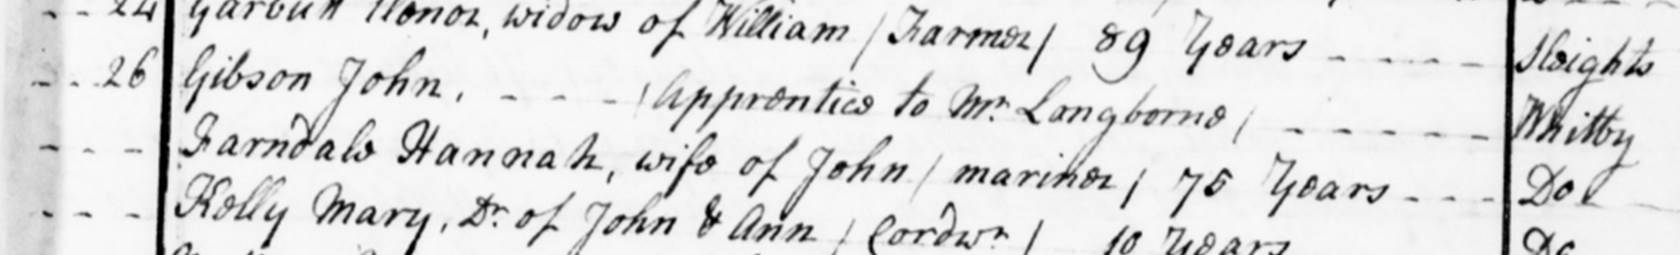 - - 24 Garbutt Elenor, widow of William / Farmer / 89 Years - - - - Sleights
- - 26 Gibson John, - - - - / Apprentice to Mr. Langborne / - - - - - Whitby
- - - Farndale Hannah, wife of John / mariner / 75 Years - - - Do
- - - Kelly Mary, Dr. of John & Ann / Cordwr. / 10 Years Do